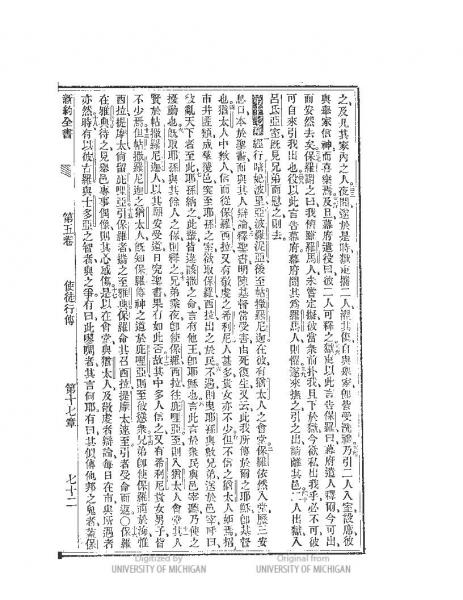 之及凡其家內之人夜間遂於是時獄吏攜二人濯其傷自與舉家卽皆受洗禮乃引二人入室設席彼
與舉家信神而喜樂焉及旦幕府遣役曰彼二人可釋之獄吏以此言告保羅曰幕府遣人釋爾今可出
而安然去矣保羅謂之曰我儕羅馬人未曾定擬彼當衆前扑我且下於獄今欲私出我乎必不可彼
可自來引我出也役以此言告幕府幕府聞其爲羅馬人則懼遂來撫之引之出請離其邑二人出獄入
呂氏亞室旣見兄弟而慰之則去
第十七章 經行暗妃波里亞波羅泥亞後至帖撒羅尼迦在彼有猶太人之會堂保羅依然入堂歷三安
息日本於聖書而與其人辯論釋聖書明陳基督當受害由死復生又云此我所傳於爾之耶穌卽基督
也猶太人中數人信而從保羅西拉又有敬虔之希利尼人甚多貴女亦不少但不信之猶太人妬焉招
市井匪類成羣擾邑突至耶孫之室欲取保羅西拉出之於民不遇則曳耶孫與數兄弟送於邑宰呼曰
彼亂天下者至此耶孫納之此輩皆違該撒之命言有他王卽耶穌也言此於衆民與邑宰聽乃使之
擾動也旣取耶孫與其餘人之保則釋之兄弟乘夜卽使保羅西拉往庇哩亞至則入猶太人會堂其人
賢於帖撒羅尼迦人以其朝安受道日究聖書果有如此否故其中多人信之又有希利尼貴女男子皆
不少焉但帖撒羅尼迦之猶太人旣知保羅傳神之道於庇哩亞則至彼遂衆兄弟卽使保羅而於海惟
西拉提摩太尙留庇哩亞引保羅者攜之至雅典保羅命其召西拉提摩太速至引者受命而返○保羅
在雅典待之見舉邑專事偶像則其心感傷是以在會堂與猶太人及敬虔者辯論每日在市與所遇者
亦然時有以彼古羅與士多亞之智者與之爭有曰此嘐嘐者其言何耶有曰其似傳他邦之鬼者蓋保
新約全書 第五卷 使徒行傳 第十七章 七十二
Digitized by
UNIVERSITY OF MICHIGAN
Original from
UNIVERSITY OF MICHIGAN